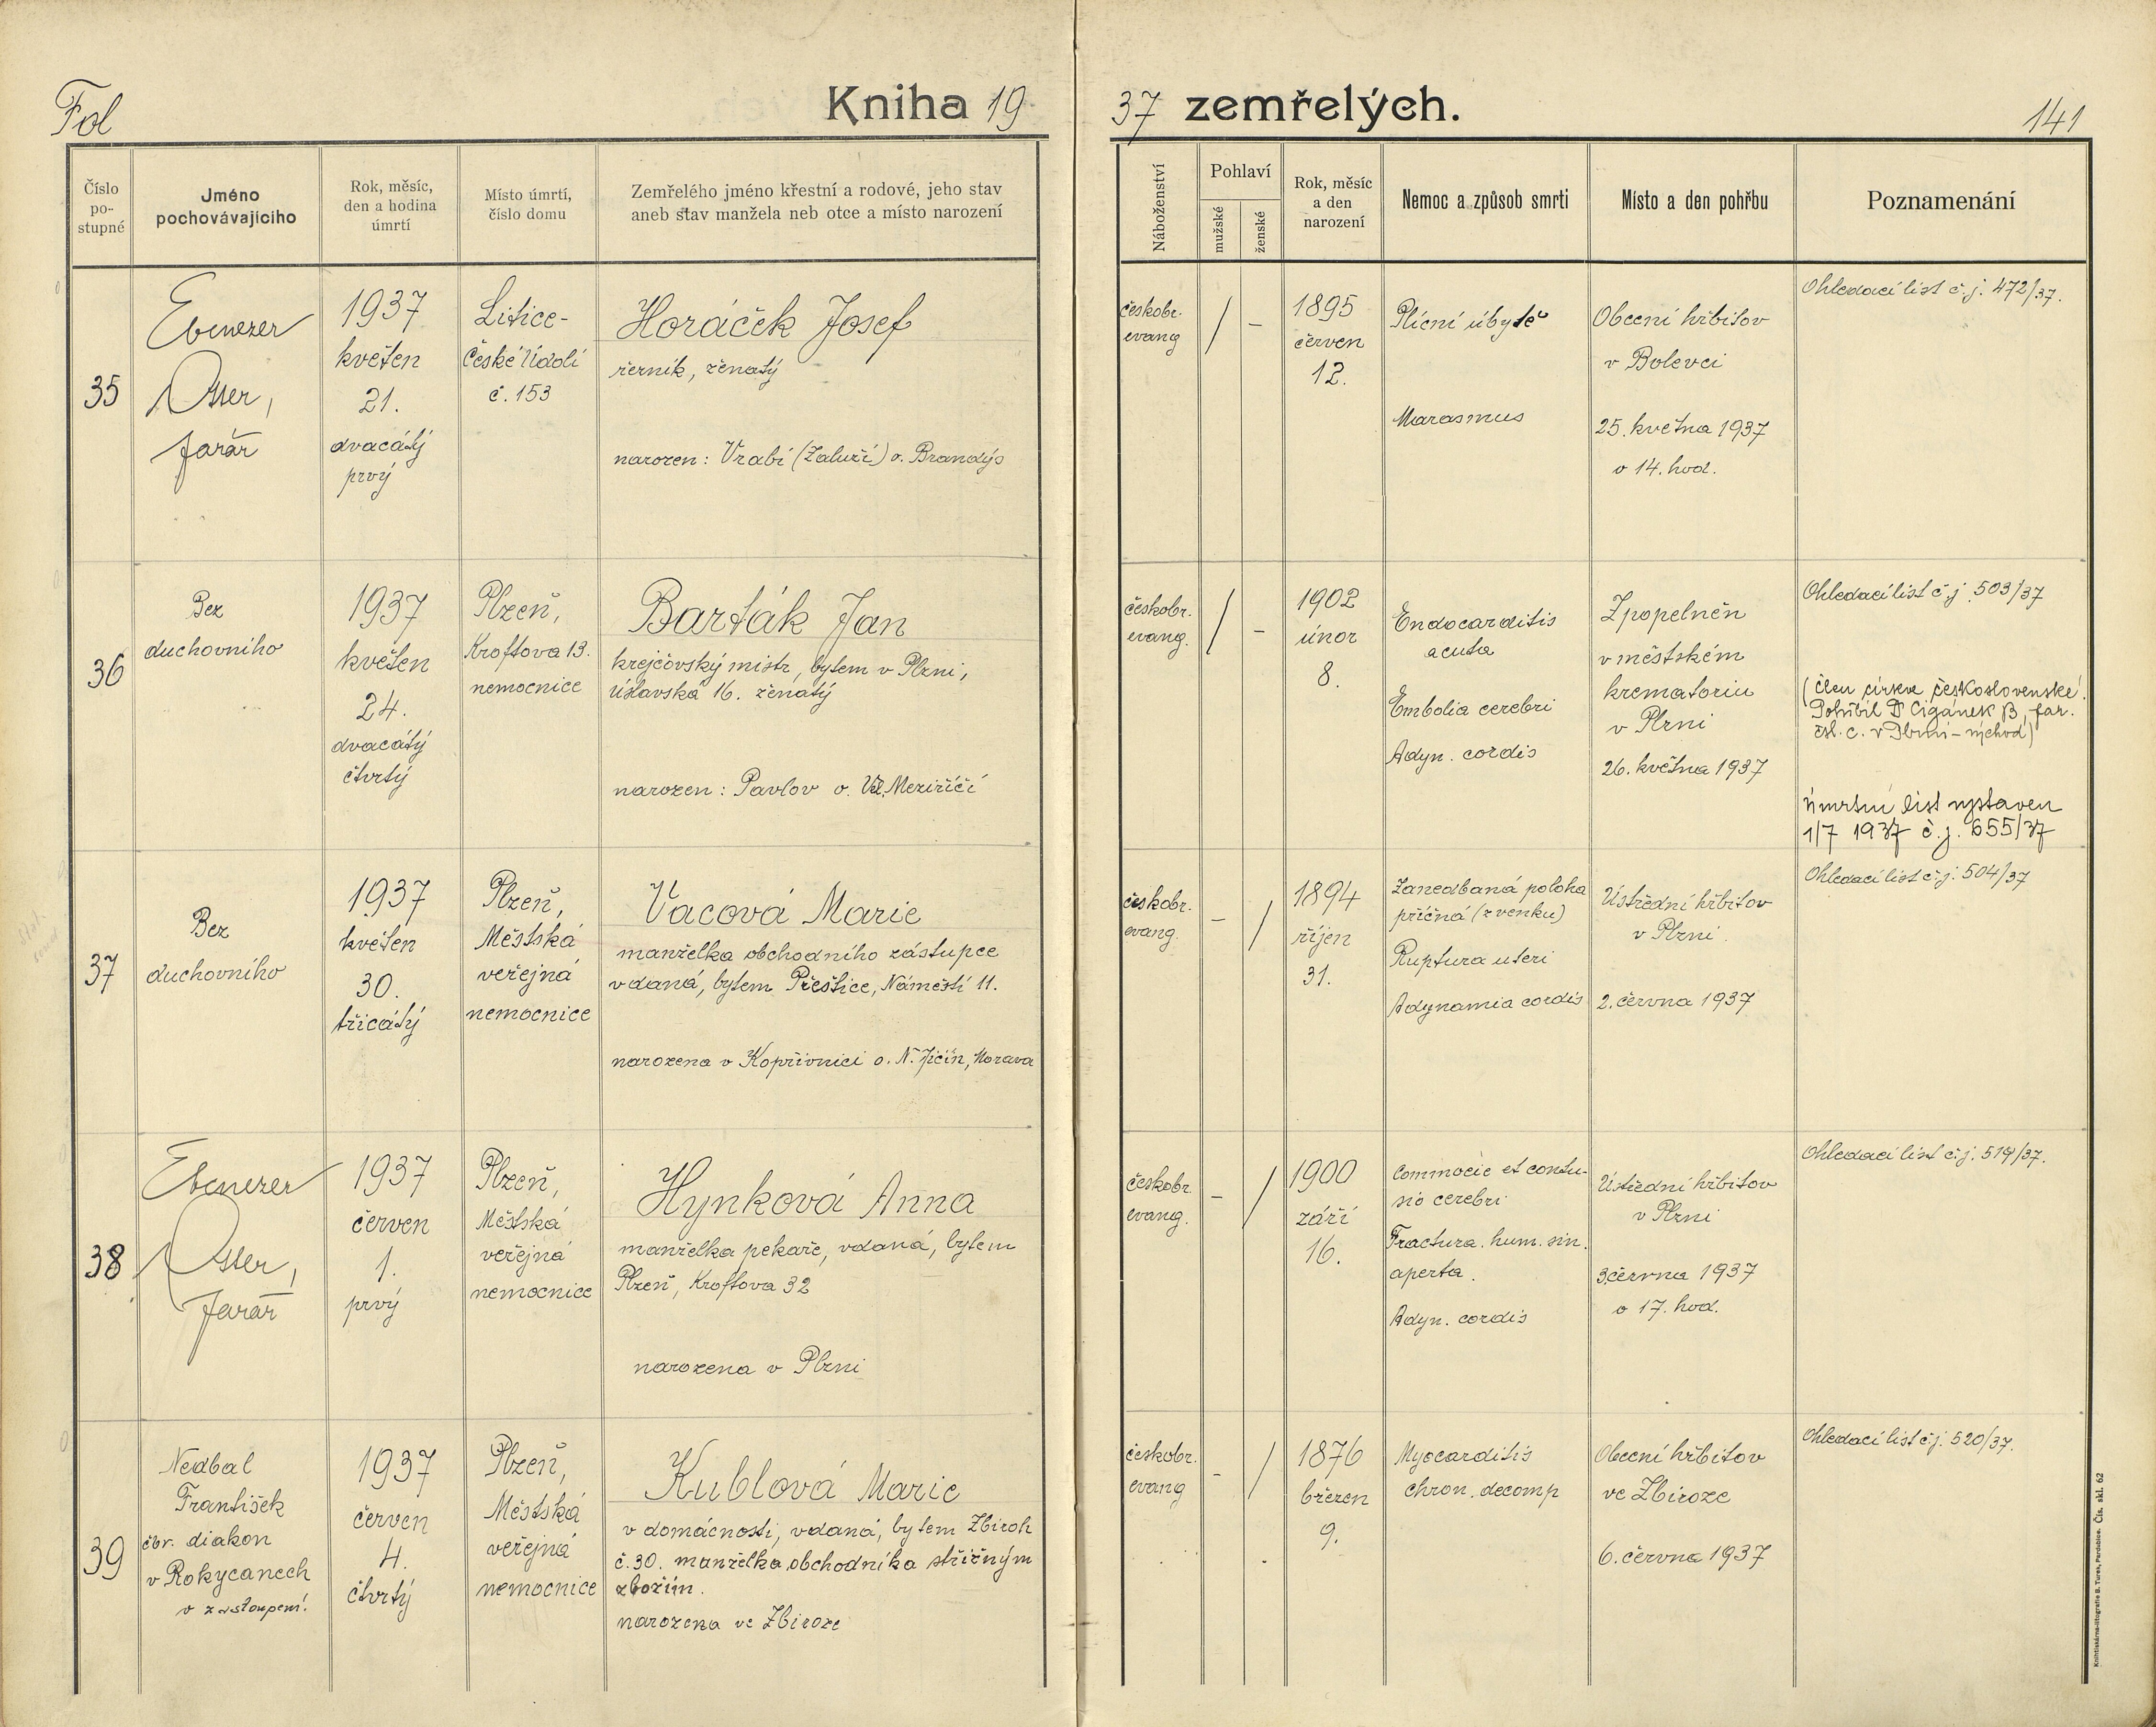 Fol
Kniha 19
37 zemřelých.
141
Číslo
po-
stupné
Jméno
pochovávajícího
Rok, měsíc,
den a hodina
úmrtí
Místo úmrtí,
číslo domu
Zemřelého jméno křestní a rodové, jeho stav
aneb stav manžela neb otce a místo narození
Náboženství
Pohlaví
mužské
ženské
Rok, měsíc
a den
narození
Nemoc a způsob smrti
Místo a den pohřbu
Poznamenání
35
Ebenezer
Otter,
farář
1937
květen
21.
dvacátý
prvý
Litice-
České Údolí
č. 153
Horáček Josef
řezník, ženatý
narozen: Vrabí (Zaluží) o. Brandýs
českobr.
evang
/
–
1895
červen
12.
Plicní úbytě
Marasmus
Obecní hřbitov
v Bolevci
25. května 1937
o 14. hod.
Ohledací list č. j. 472/37.
36
Bez
duchovního
1937
květen
24.
dvacátý
čtvrtý
Plzeň,
Kroftova 13.
nemocnice
Barták Jan
krejčovský mistr, bytem v Plzni,
Úslavská 16. ženatý
narozen: Pavlov o. Vel. Meziříčí
českobr.
evang.
/
–
1902
únor
8.
Endocarditis
acuta
Embolia cerebri
Adyn. cordis
Zpopelněn
v městském
krematoriu
v Plzni
26. května 1937
Ohledací list č. j. 503/37
(člen církve československé.
Pohřbil Dr Cigánek B, far.
čsl. c. v Plzni – východ)
Úmrtní list vystaven
1/7 1937 č. j. 655/37
37
Bez
duchovního
1937
květen
30.
třicátý
Plzeň,
Městská
veřejná
nemocnice
Vacová Marie
manželka obchodního zástupce
vdaná, bytem Přeštice, Náměstí 11.
narozena v Kopřivnici o. N. Jičín, Morava
českobr.
evang.
–
/
1894
říjen
31.
Zanedbaná poloha
příčná (zvenku)
Ruptura uteri
Adynamia cordis
Ústřední hřbitov
v Plzni.
2. června 1937
Ohledací list č. j. 504/37
38
Ebenezer
Otter,
farář
1937
červen
1.
prvý
Plzeň,
Městská
veřejná
nemocnice
Hynková Anna
manželka pekaře, vdaná, bytem
Plzeň, Kroftova 32
narozena v Plzni
českobr.
evang.
–
/
1900
září
16.
Commocie et contu-
sio cerebri
Fractura. hum. sin.
aperta.
Adyn. cordis
Ústřední hřbitov
v Plzni
3. června 1937
o 17. hod.
Ohledací list č. j. 519/37.
39
Nedbal
František
čbr. diakon
v Rokycanech
v zastoupení.
1937
červen
4.
čtvrtý
Plzeň,
Městská
veřejná
nemocnice
Kublová Marie
v domácnosti, vdaná, bytem Zbiroh
č. 30. manželka obchodníka střižným
zbožím.
narozena ve Zbiroze
českobr.
evang
–
/
1876
březen
9.
Myocarditis
chron. decomp
Obecní hřbitov
ve Zbiroze
6. června 1937
Ohledací list č. j. 520/37.
Knihtiskárna-litografie B. Turek, Pardubice. Čís. skl. 62